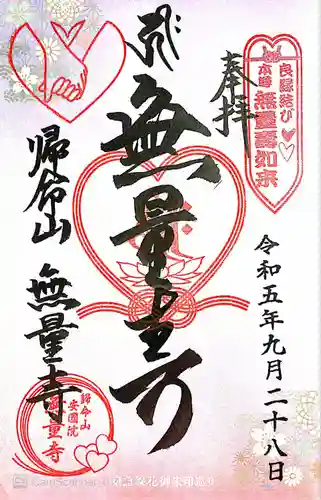 良縁結び
本尊 無量寿如来
奉拝
無量寿
令和五年九月二十八日
帰命山
無量寺
歸命山
安國院
無量寺
CamScanner